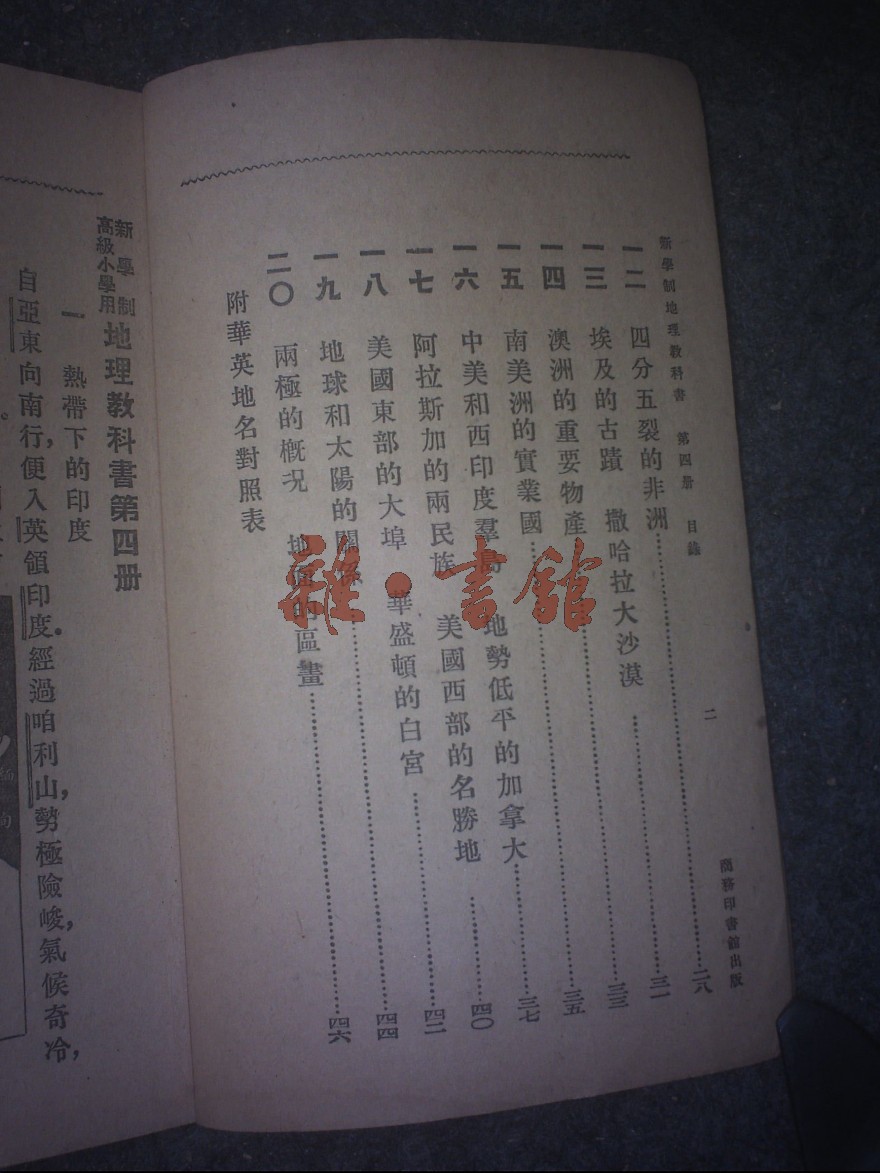 新學制地理教科書 第四册 目錄 二 商務印書館出版
一二 四分五裂的非洲……二八
一三 埃及的古蹟 撒哈拉大沙漠……三一
一四 澳洲的重要物產……三三
一五 南美洲的實業國……三五
一六 中美和西印度羣島 地勢低平的加拿大……三七
一七 阿拉斯加的兩民族 美國西部的名勝地……四〇
一八 美國東部的大埠 華盛頓的白宮……四二
一九 地球和太陽的關係……四四
二〇 兩極的概况 地的區畫……四六
附華英地名對照表
雜·書館
新學制
高級小學用
地理教科書第四册
一 熱帶下的印度
自亞東向南行,便入英領印度。經過咱利山,勢極險峻,氣候奇冷,